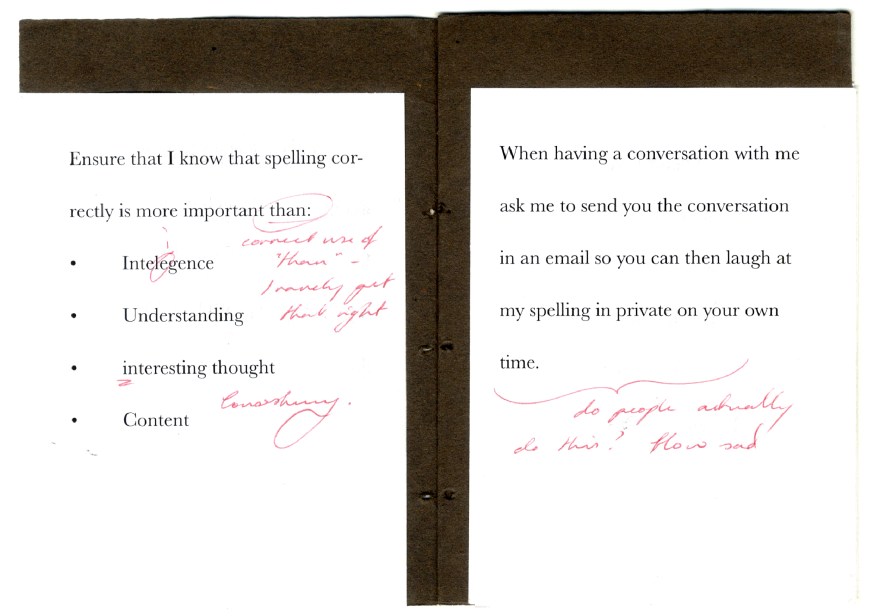 Ensure that I know that spelling cor-
rectly is more important than:
i
correct use of
• Intelegence
"than" –
I rarely get
• Understanding
that right
• interesting thought
Consistency.
• Content
When having a conversation with me
ask me to send you the conversation
in an email so you can then laugh at
my spelling in private on your own
time.
do people actually
do this? How sad